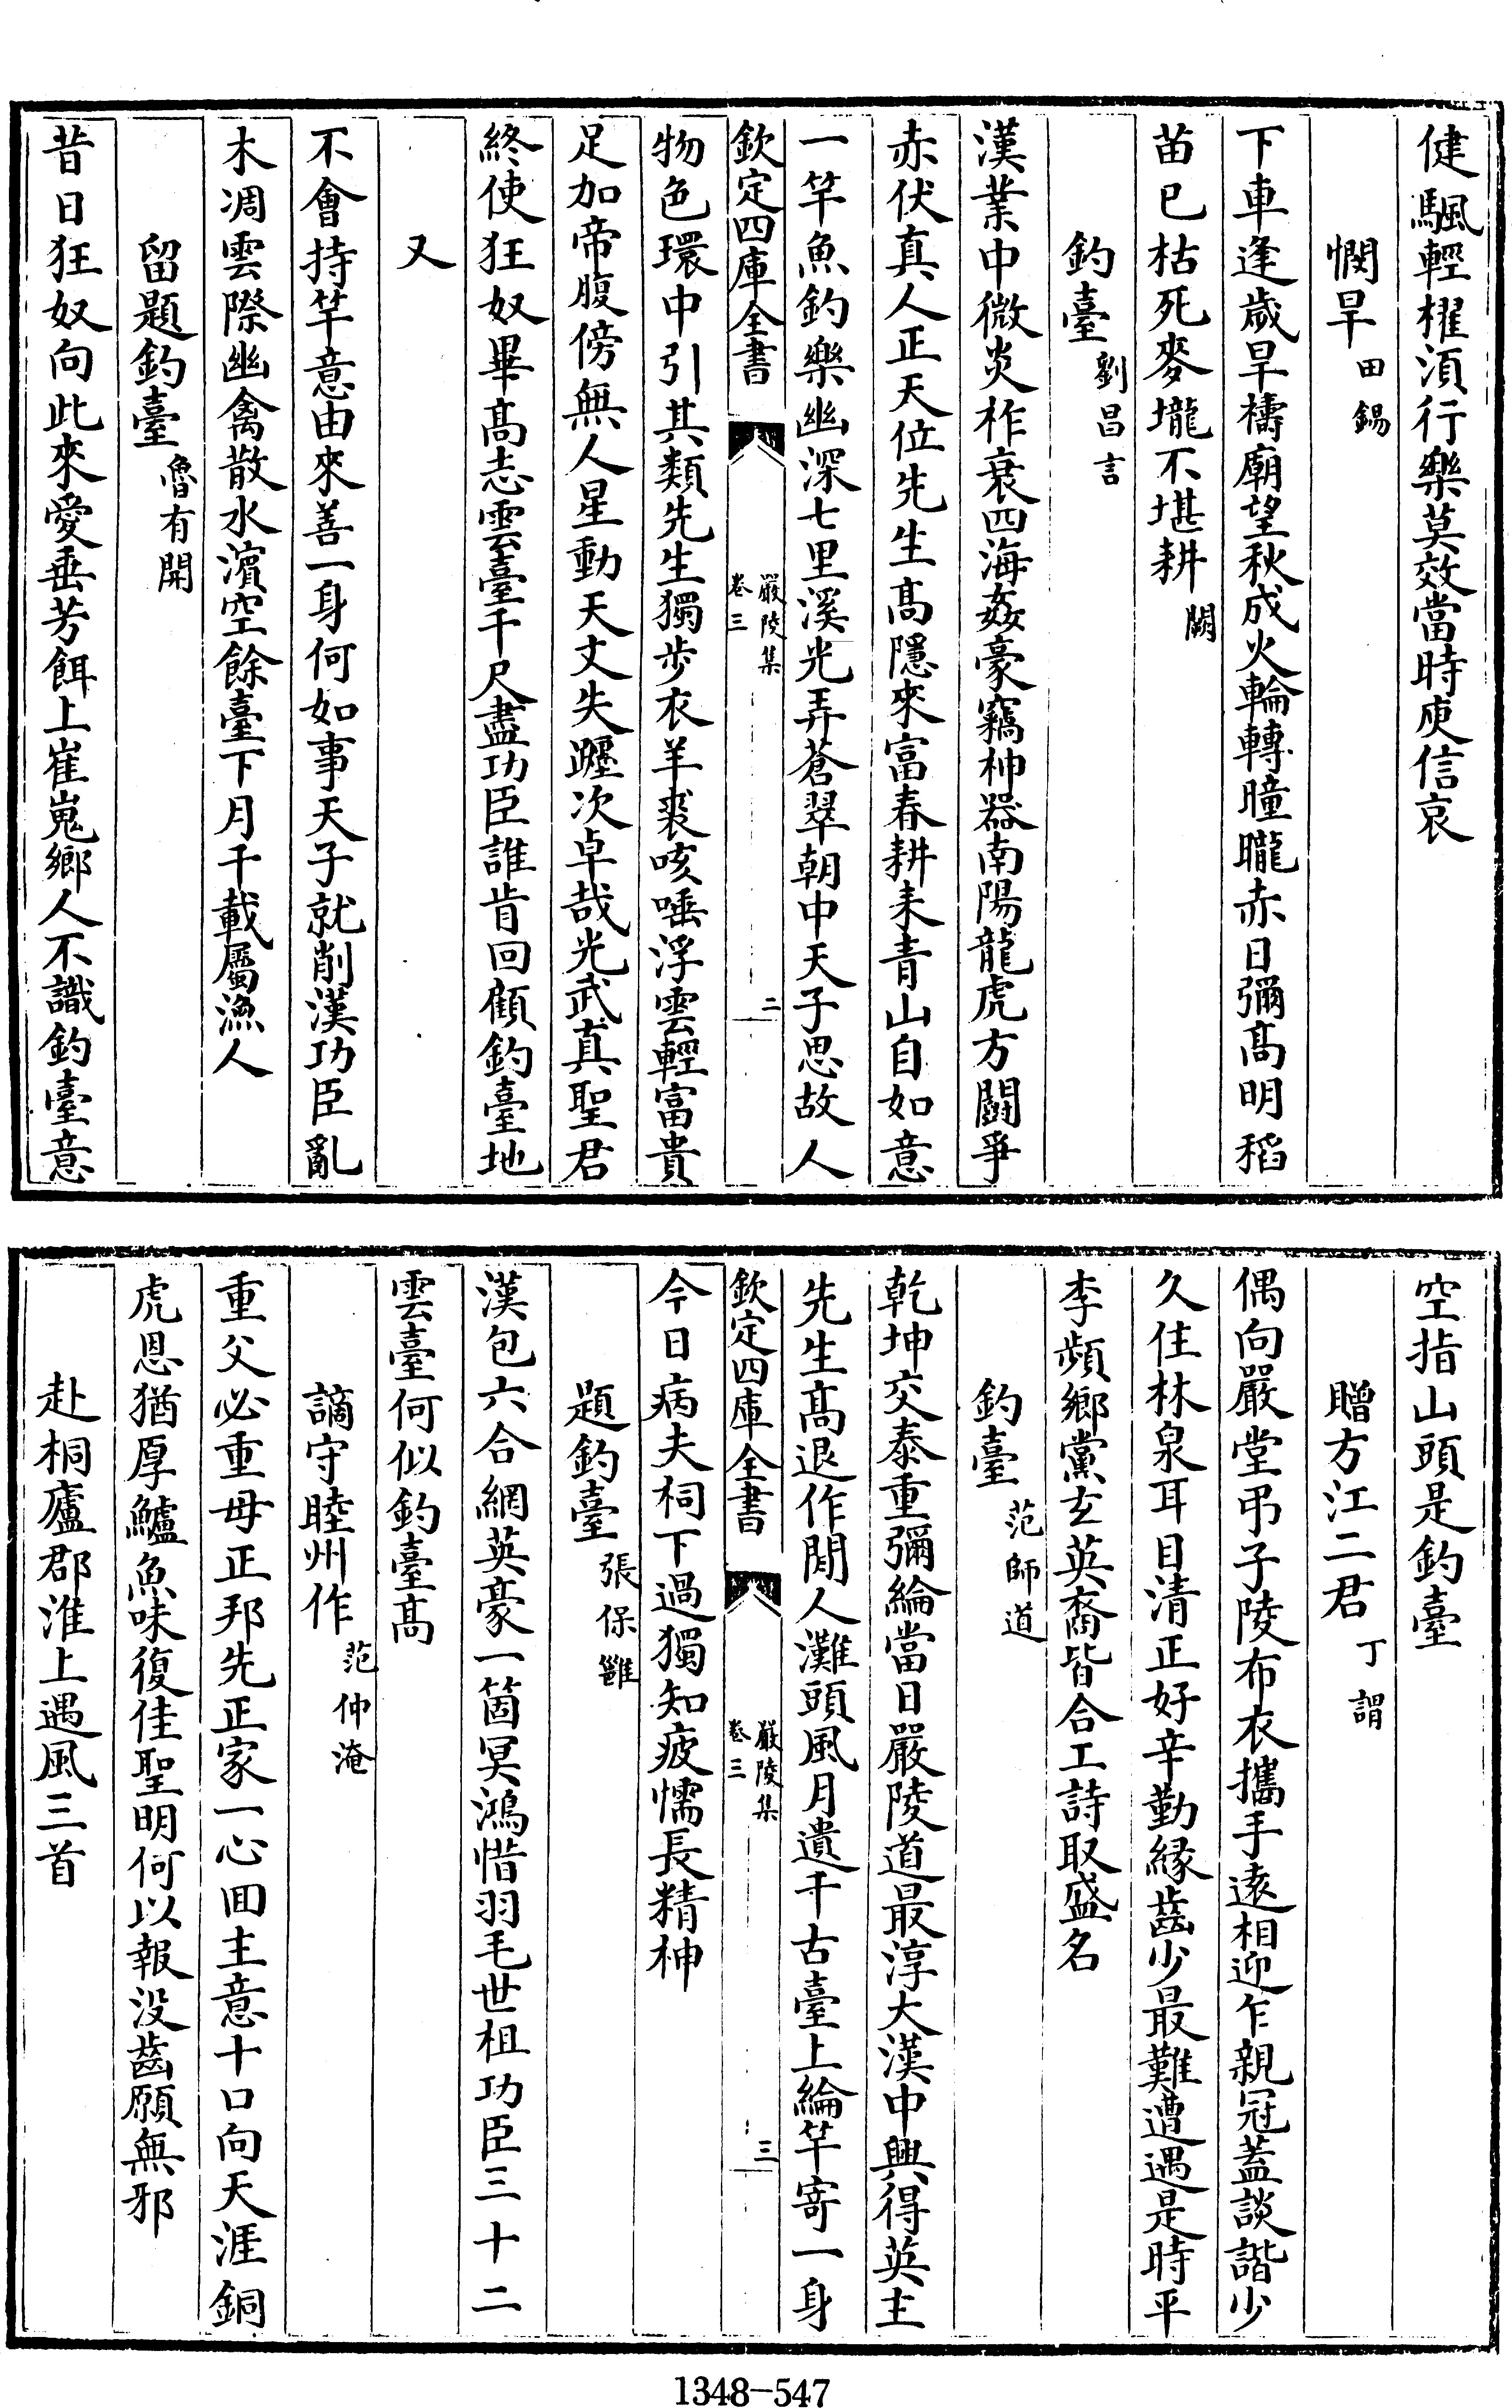 健颿輕櫂須行樂莫效當時庾信哀
憫旱 田錫
下車逢歲旱禱廟望秋成火輪轉曈曨赤日彌髙明稻
苗已枯死麥壠不堪耕 闕
釣臺 劉昌言
漢業中微炎祚衰四海姦豪竊神器南陽龍虎方鬬爭
赤伏真人正天位先生髙隱來富春耕耒青山自如意
一竿魚釣樂幽深七里溪光弄蒼翠朝中天子思故人
欽定四庫全書 嚴陵集 卷三 二
物色環中引其類先生獨步衣羊裘咳唾浮雲輕富貴
足加帝腹傍無人星動天文失躔次卓哉光武真聖君
終使狂奴畢髙志雲臺千尺盡功臣誰肯回顧釣臺地
又
不會持竿意由來善一身何如事天子就削漢功臣亂
木凋雲際幽禽散水濵空餘臺下月千載屬漁人
留題釣臺 魯有開
昔日狂奴向此來愛垂芳餌上崔嵬鄉人不識釣臺意
空指山頭是釣臺
贈方江二君 丁謂
偶向嚴堂弔子陵布衣攜手逺相迎乍親冠蓋談諧少
久住林泉耳目清正好辛勤縁齒少最難遭遇是時平
李頻鄉黨𤣥英裔皆合工詩取盛名
釣臺 范師道
乾坤交泰重彌綸當日嚴陵道最淳大漢中興得英主
先生髙退作閒人灘頭風月遺千古臺上綸竿寄一身
欽定四庫全書 嚴陵集 卷三 三
今日病夫祠下過獨知疲懦長精神
題釣臺 張保雝
漢包六合網英豪一箇冥鴻惜羽毛世祖功臣三十二
雲臺何似釣臺髙
謫守睦州作 范仲淹
重父必重母正邦先正家一心回主意十口向天涯銅
虎恩猶厚鱸魚味復佳聖明何以報没齒願無邪
赴桐廬郡淮上遇風三首
1348-547